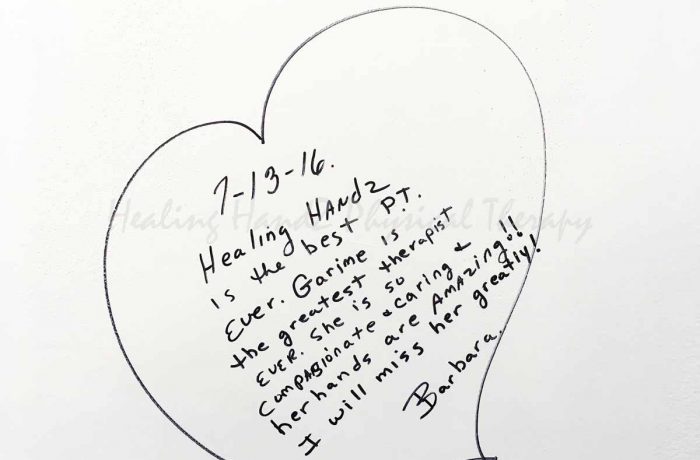 7-13-16.
Healing Handz
is the best P.T.
Ever. Garime is
the greatest therapist
EVER. She is so
Compasionate & caring &
her hands are AMAzing!!
I will miss her greatly!
Barbara.
Healing Handz Physical Therapy